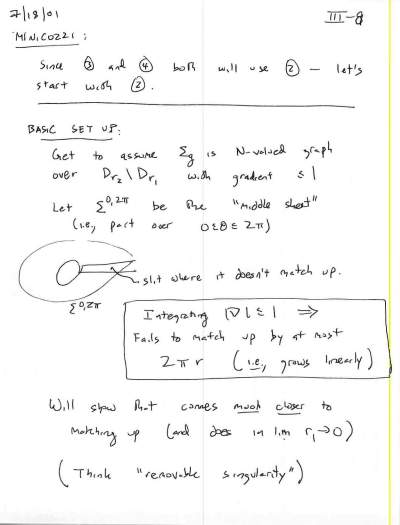 7/18/01 III-8
MINICOZZI:
Since ③ and ④ both will use ② — let's
start with ②.
BASIC SET UP:
Get to assume Σg is N-valued graph
over Dr₂ \ Dr₁ with gradient ≤ 1
Let Σ^0,2π be the "middle sheet"
(i.e., part over 0 ≤ θ ≤ 2π)
slit where it doesn't match up.
Σ^0,2π
Integrating |∇| ≤ 1 ⇒
Fails to match up by at most
2πr (i.e., grows linearly)
Will show that comes much closer to
matching up (and does in lim r₁→0)
(Think "removable singularity")